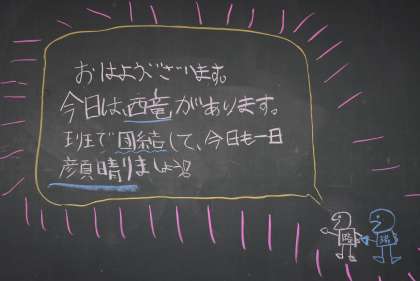 おはようございます。
今日は、西竜があります。
班で団結して、今日も一日
顔晴りましょう